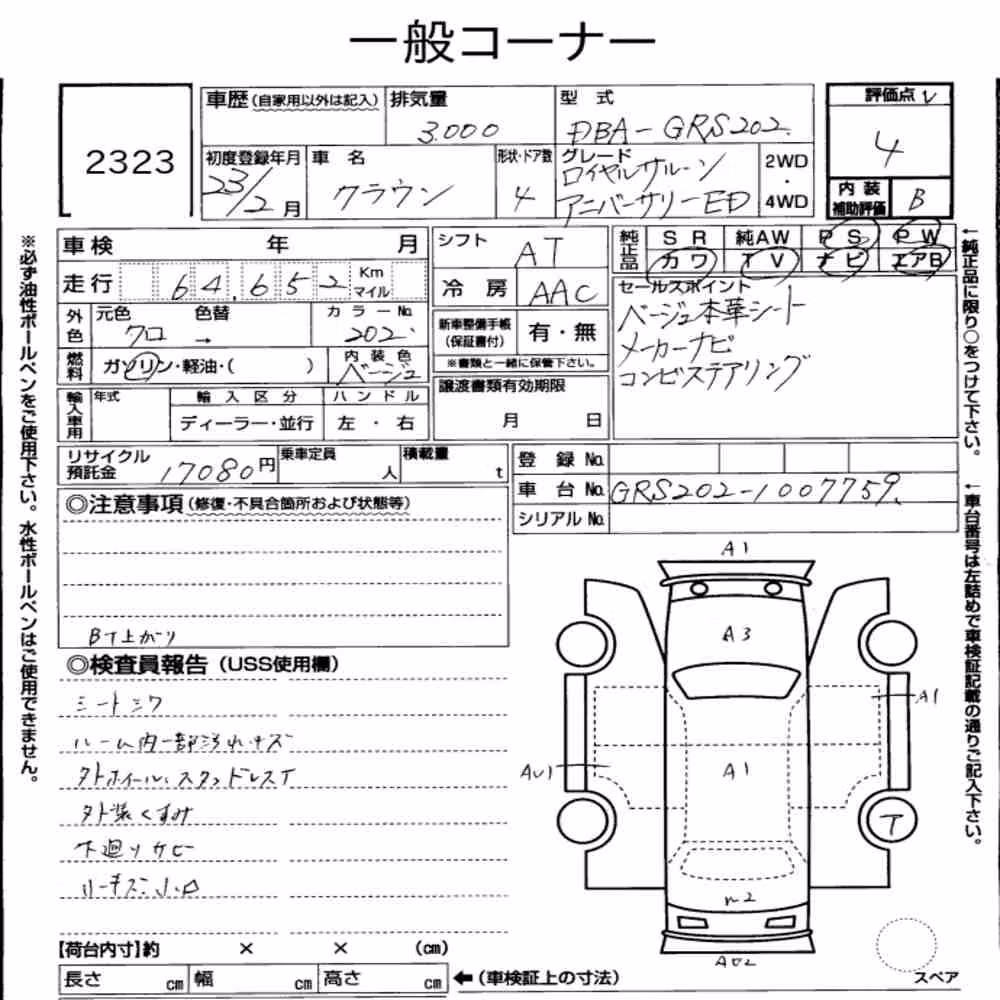 一般コーナー
2323
車歴(自家用以外は記入)
排気量
3.000
型式
DBA-GRS202.
評価点
4
初度登録年月
23/2月
車名
クラウン
形状・ドア数
4
グレード
ロイヤルサルーン
アニバーサリーED
2WD
・
4WD
内装
補助評価
B
車検 年 月
走行 64,652 Km
マイル
シフト AT
冷房 AAC
純正品
SR 純AW PS PW
カワ TV ナビ エアB
外色
元色 色替 カラーNo.
クロ → 202
燃料
ガソリン・軽油・( )
内装色
ベージュ
新車整備手帳
(保証書付)
有・無
※書類と一緒に保管下さい。
セールスポイント
ベージュ本革シート
メーカーナビ
コンビステアリング
輸入車用
年式 輸入区分 ハンドル
ディーラー・並行 左・右
譲渡書類有効期限
月 日
リサイクル
預託金 17080円
乗車定員 人
積載量 t
登録No.
車台No. GRS202-1007759.
シリアルNo.
◎注意事項(修復・不具合箇所および状態等)
BT上がり
◎検査員報告(USS使用欄)
シートシワ
ルーム内一部汚れキズ
タトホイール、スタッドレスT
外装くすみ
下廻りサビ
A1
A3
A1
A1
AU1
T
AU2
【荷台内寸】約 × × (cm)
長さ cm 幅 cm 高さ cm
←(車検証上の寸法)
スペア
※必ず油性ボールペンをご使用下さい。水性ボールペンはご使用できません。
←純正品に限り○をつけて下さい。
←車台番号は左詰めで車検証記載の通りご記入下さい。